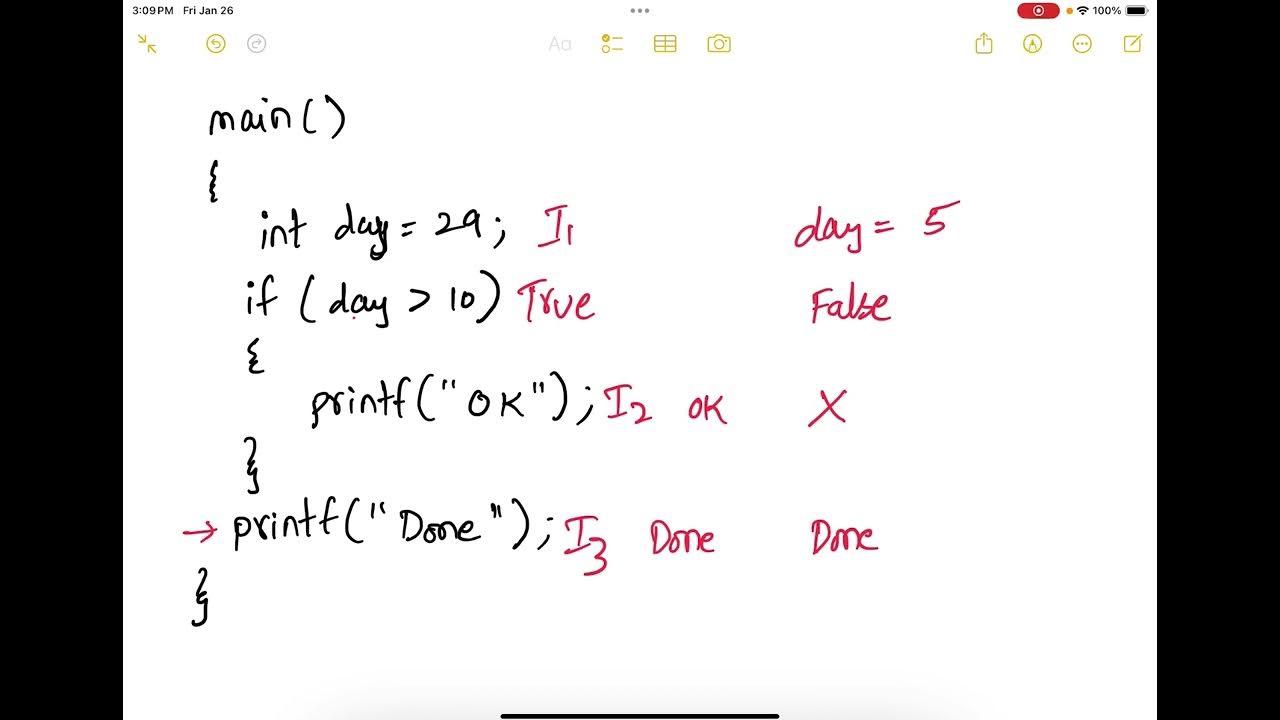 3:09 PM Fri Jan 26 100%
Aa
main()
{
int day = 29; I1 day = 5
if (day > 10) True False
{
printf("OK"); I2 OK X
}
→ printf("Done"); I3 Done Done
}